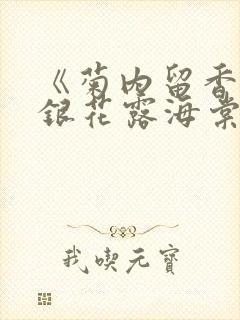 《菊内留香
銀花露海棠
我喫元寶